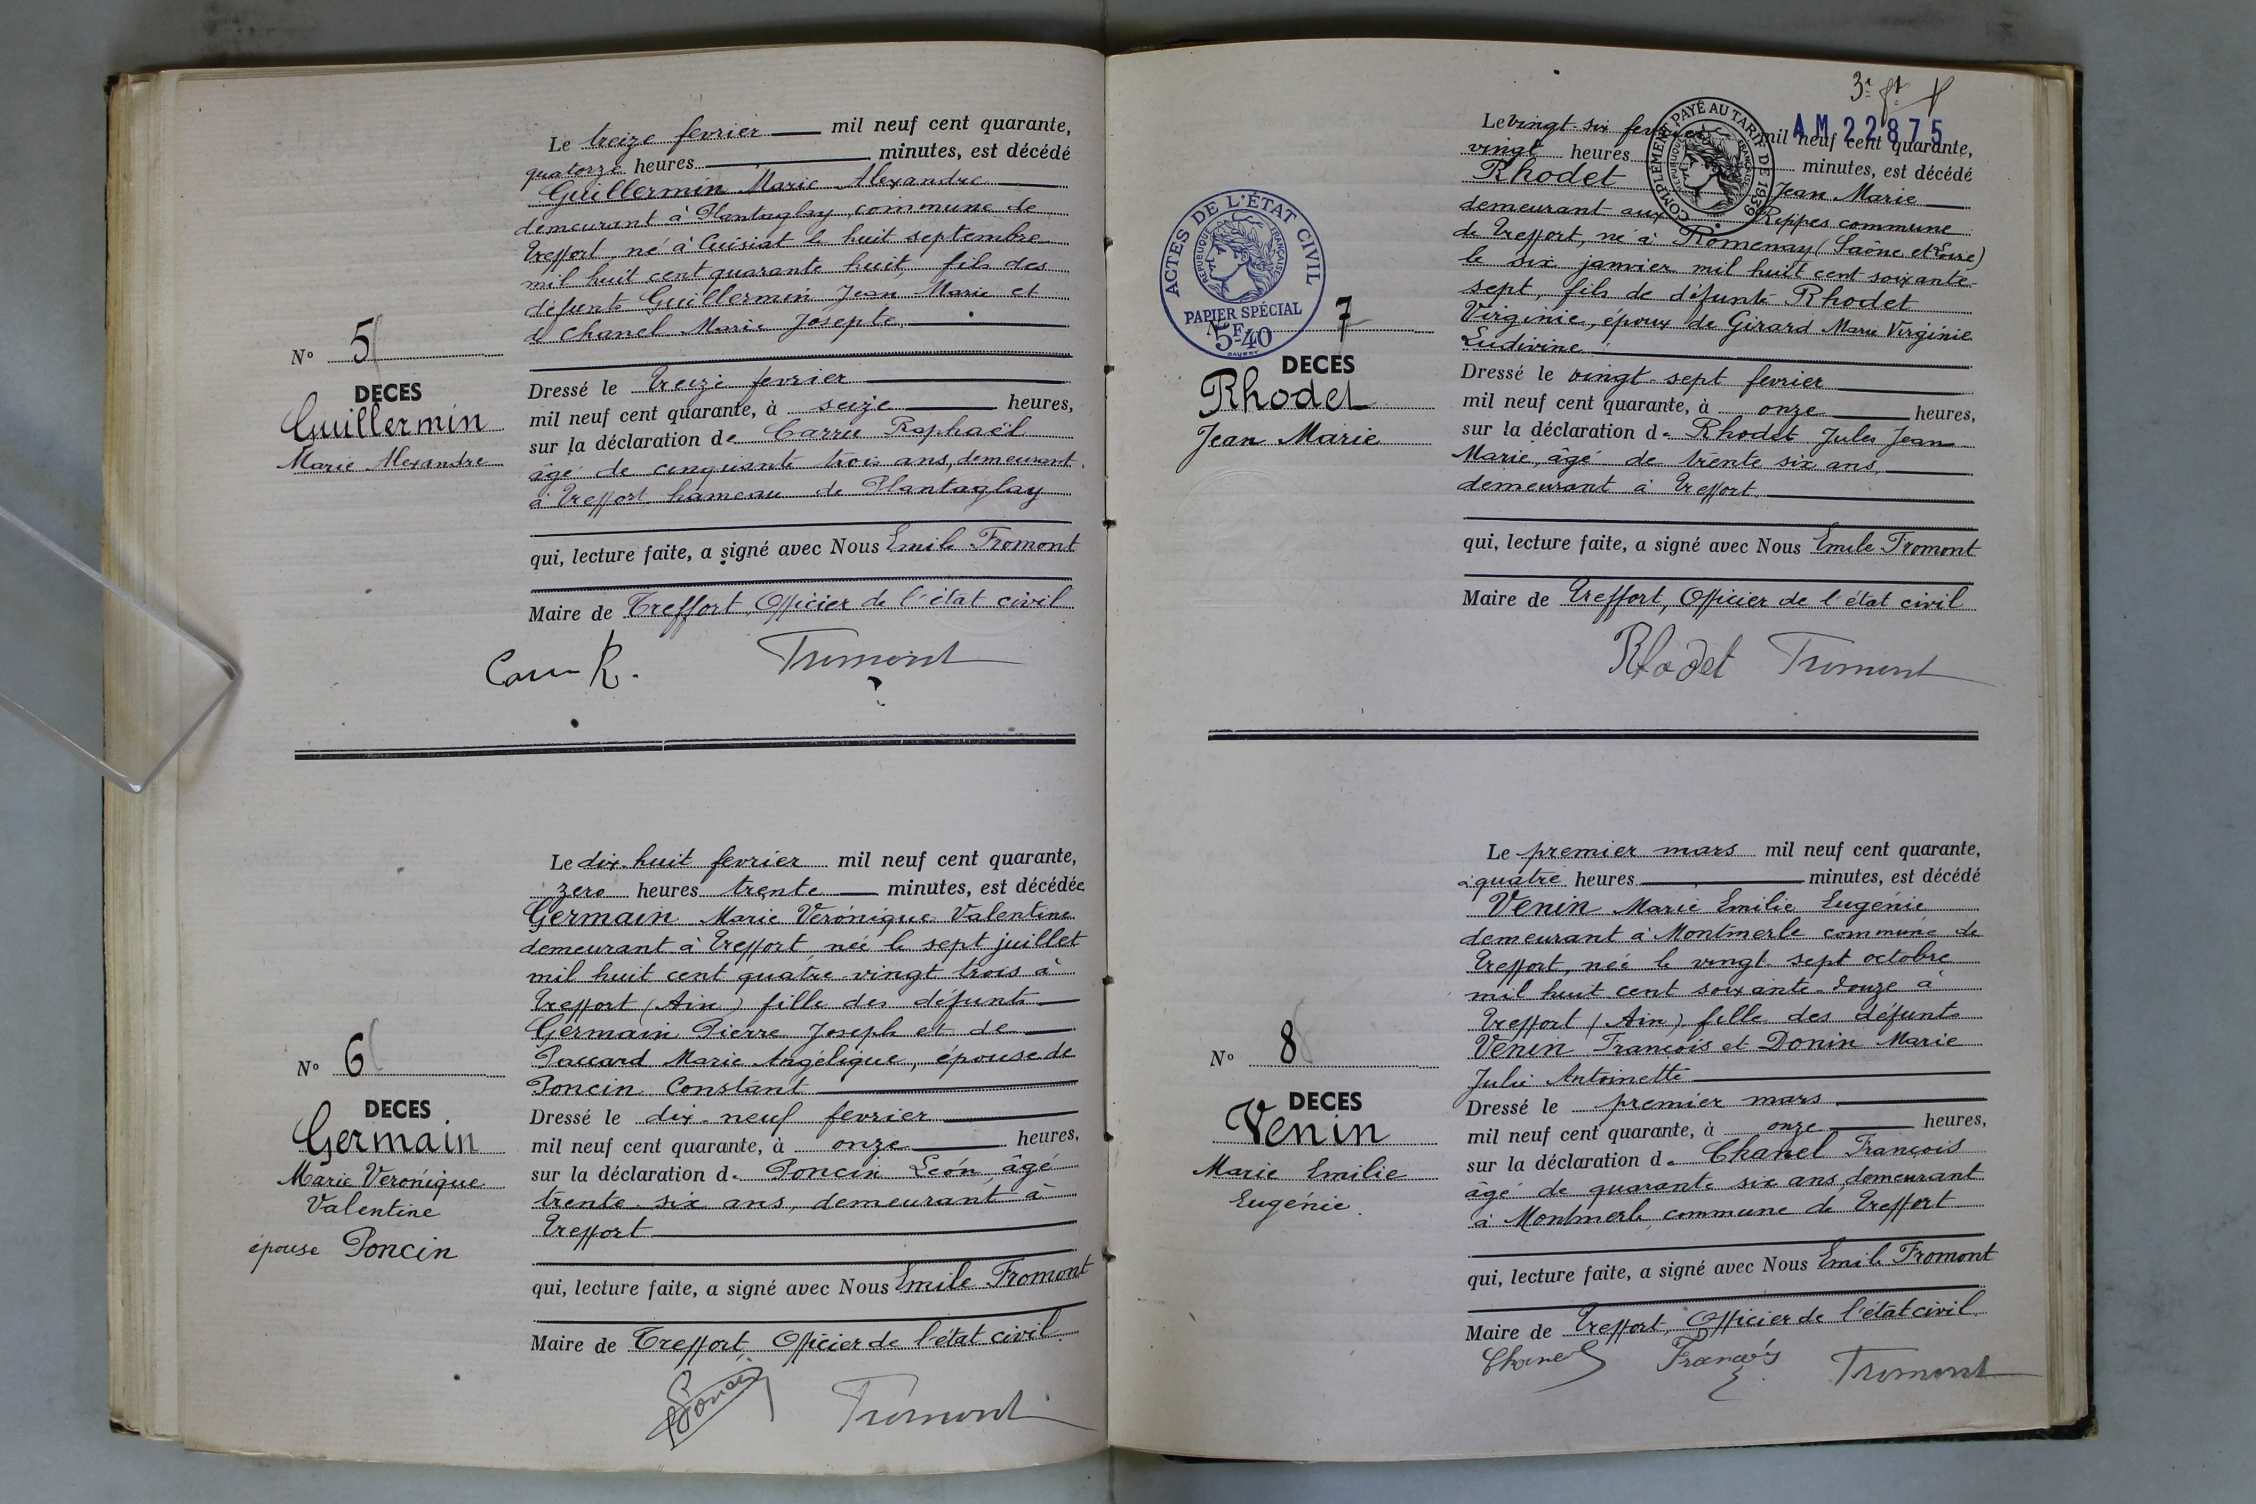 Le treize fevrier mil neuf cent quarante,
quatorze heures minutes, est décédé
Guillermin Marie Alexandre
demeurant à Plantaglay, commune de
Treffort, né à Cuisiat le huit septembre
mil huit cent quarante huit, fils des
défunts Guillermin Jean Marie et
d Chanel Marie Josepte,
N° 5
DECES
Guillermin
Marie Alexandre
Dressé le treize fevrier
mil neuf cent quarante, à seize heures,
sur la déclaration de Carru Raphaël
âgé de cinquante trois ans, demeurant
à Treffort hameau de Plantaglay
qui, lecture faite, a signé avec Nous Emile Fromont
Maire de Treffort, Officier de l'état civil
R. Fromont
Le dix-huit fevrier mil neuf cent quarante,
zero heures trente minutes, est décédée
Germain Marie Véronique Valentine
demeurant à Treffort, née le sept juillet
mil huit cent quatre-vingt trois à
Treffort (Ain) fille des défunts
Germain Pierre Joseph et de
Paccard Marie Angélique, épouse de
Poncin Constant
N° 6
DECES
Germain
Marie Véronique
Valentine
épouse Poncin
Dressé le dix-neuf fevrier
mil neuf cent quarante, à onze heures,
sur la déclaration de Poncin Léon, âgé
trente-six ans, demeurant à
Treffort
qui, lecture faite, a signé avec Nous Emile Fromont
Maire de Treffort, Officier de l'état civil.
Poncin Fromont
AM 22875
COMPLÉMENT PAYÉ AU TARIF DE 1939
RÉPUBLIQUE FRANÇAISE
Le vingt-six fevrier mil neuf cent quarante,
vingt heures minutes, est décédé
Rhodet Jean Marie
demeurant aux Reppes commune
de Treffort, né à Romenay (Saône et Loire)
le six janvier mil huit cent soixante-
sept, fils de défunte Rhodet
Virginie, époux de Girard Marie Virginie
Ludivine
ACTES DE L'ÉTAT CIVIL
RÉPUBLIQUE FRANÇAISE
PAPIER SPÉCIAL
5F.40
N° 7
DECES
Rhodet
Jean Marie
Dressé le vingt-sept fevrier
mil neuf cent quarante, à onze heures,
sur la déclaration de Rhodet Jules Jean
Marie, âgé de trente six ans,
demeurant à Treffort.
qui, lecture faite, a signé avec Nous Emile Fromont
Maire de Treffort, Officier de l'état civil
Rhodet Fromont
Le premier mars mil neuf cent quarante,
à quatre heures minutes, est décédé
Venin Marie Emilie Eugénie
demeurant à Montmerle commune de
Treffort, née le vingt-sept octobre
mil huit cent soixante-douze à
Treffort (Ain) fille des défunts
Venin François et Donin Marie
Julie Antoinette
N° 8
DECES
Venin
Marie Emilie
Eugénie.
Dressé le premier mars
mil neuf cent quarante, à onze heures,
sur la déclaration de Chanel François
âgé de quarante six ans, demeurant
à Montmerle, commune de Treffort
qui, lecture faite, a signé avec Nous Emile Fromont
Maire de Treffort, Officier de l'état civil.
Chanel François Fromont